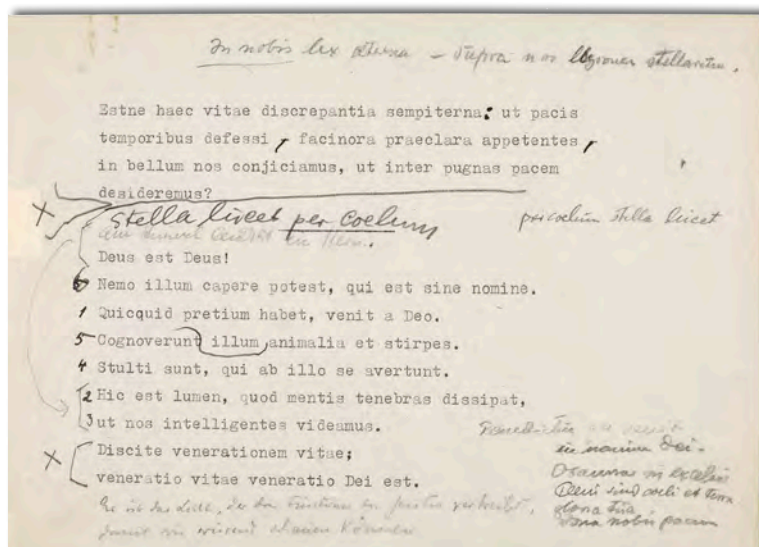 In nobis lex aeterna – supra nos legiones stellarum.
Estne haec vitae discrepantia sempiterna: ut pacis
temporibus defessi, facinora praeclara appetentes,
in bellum nos conjiciamus, ut inter pugnas pacem
desideremus?
X stella lucet per coelum
per coelum stella lucet
am Himmel ein Stern.
Deus est Deus!
6 Nemo illum capere potest, qui est sine nomine.
1 Quicquid pretium habet, venit a Deo.
5 Cognoverunt illum animalia et stirpes.
4 Stulti sunt, qui ab illo se avertunt.
2 Hic est lumen, quod mentis tenebras dissipat,
3 ut nos intelligentes videamus.
X Discite venerationem vitae;
veneratio vitae veneratio Dei est.
in nomine Dei.
Osanna in excelsis
sind coeli et terra
dona tua
dona nobis pacem
Er ist das Licht, der
damit wir wissend schauen können